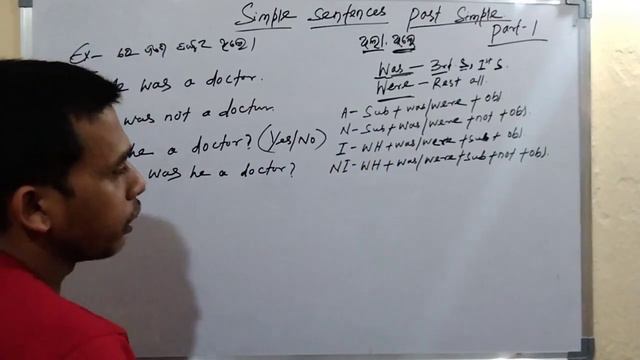 Simple sentences Past Simple
Part-1
Ex- ସେ ଜଣେ ଡାକ୍ତର ଥିଲେ।
ଥିଲା, ଥିଲେ
Was - 3rd S, Ist S.
Were - Rest all.
he was a doctor.
was not a doctor.
he a doctor? (Yes/No)
was he a doctor?
A- Sub + was/were + obj
N- Sub + was/were + not + obj.
I- WH + was/were + sub + obj
NI- WH + was/were + sub + not + obj.